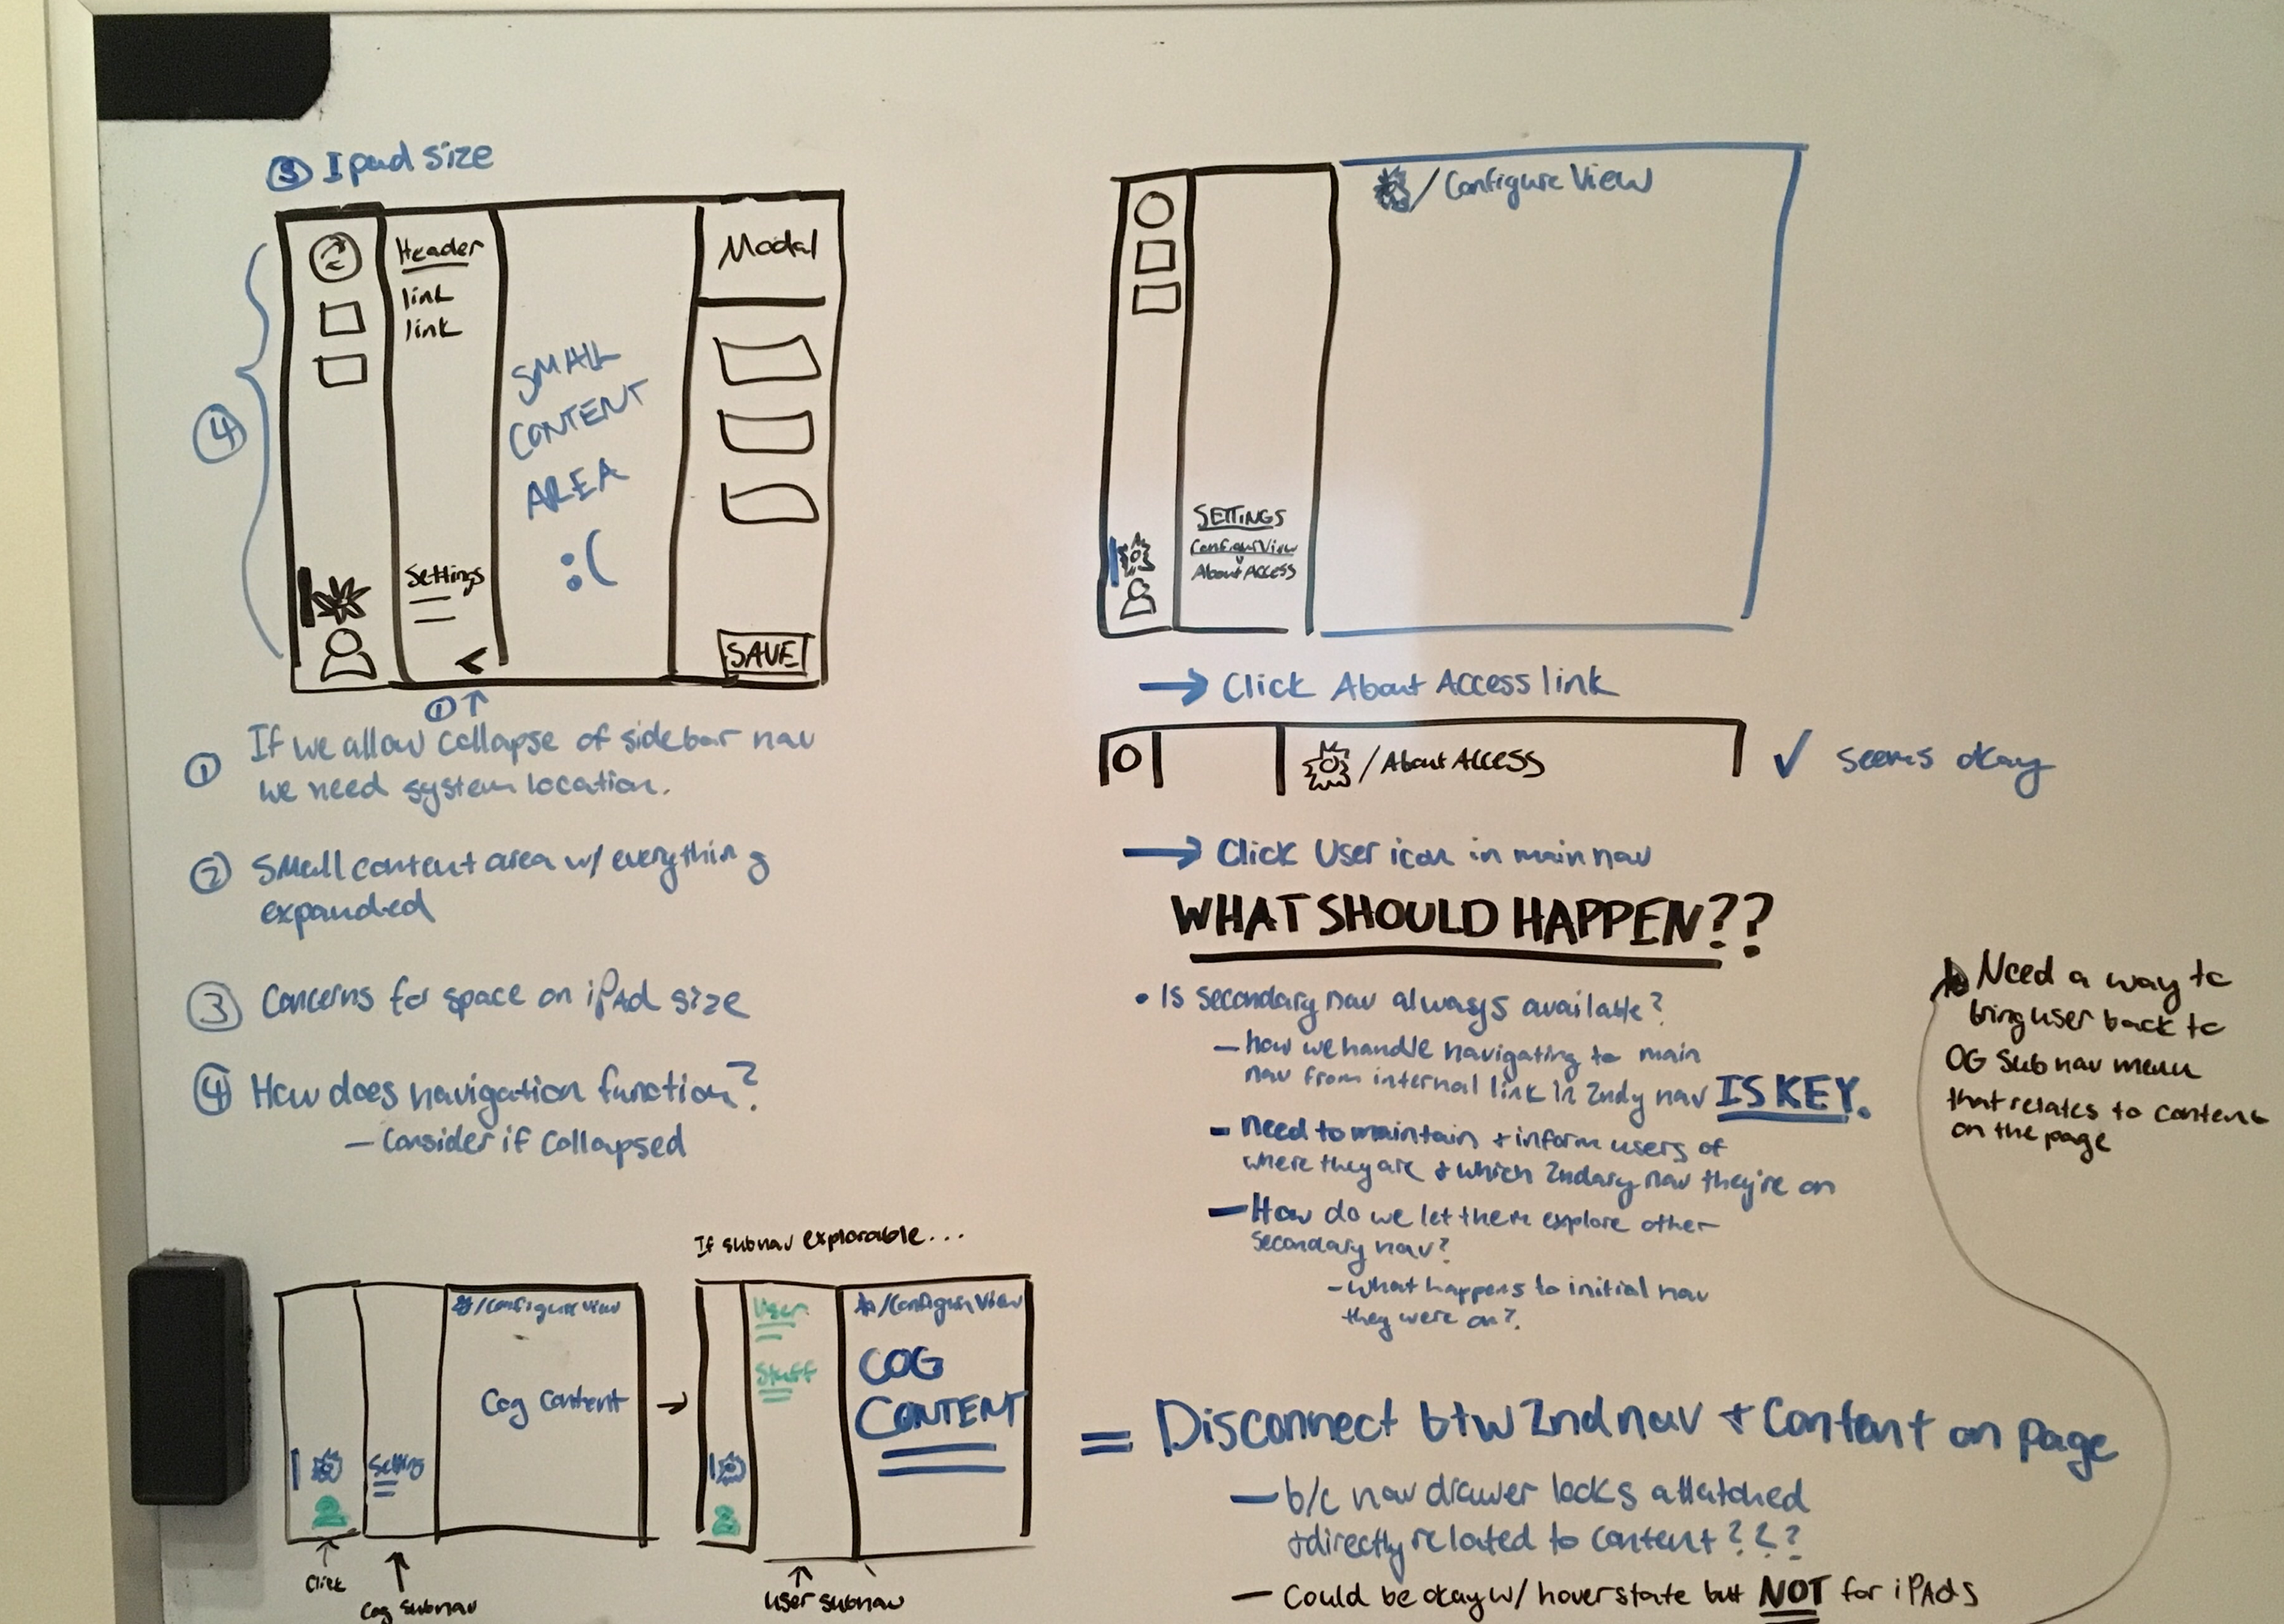 ③ Ipad size
Header
link
link
Settings
<
SMALL
CONTENT
AREA
:(
Modal
SAVE
④
① ↑
① If we allow collapse of sidebar nav
we need system location.
② Small content area w/ everything
expanded
③ Concerns for space on iPAd size
④ How does navigation function?
– Consider if collapsed
/Configure View
SETTINGS
Configure View
About Access
→ Click About Access link
/About Access
✓ seems okay
→ Click User icon in main nav
WHAT SHOULD HAPPEN??
• Is secondary nav always available?
– how we handle navigating to main
nav from internal link in 2ndy nav IS KEY.
– need to maintain + inform users of
where they are + which 2ndary nav they're on
– How do we let them explore other
secondary nav?
– what happens to initial nav
they were on?
Need a way to
bring user back to
OG sub nav menu
that relates to content
on the page
If subnav explorable...
/Configure View
Cog Content
Setting
Click
Cog subnav
→
User
Stuff
/Configure View
COG
CONTENT
User subnav
= Disconnect btw 2nd nav + Content on page
– b/c nav drawer looks attatched
+ directly related to content???
– Could be okay w/ hover state but NOT for iPAds